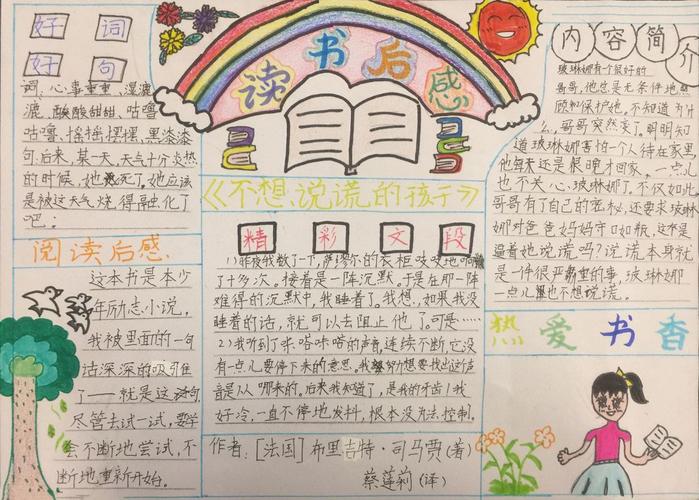 好 词
好 句
词、心事重重、湿漉
漉、酸酸甜甜、咕噜
咕噜、摇摇摆摆、黑漆漆
句.后来,某一天,天气十分炎热
的时候,她死了。她应该
是被这天气,烧得融化了
吧!
阅读后感
这本书是本少
年励志小说,
我被里面的一句
话深深的吸引住
了——就是这句,
尽管去试一试,要
会不断地尝试,不
断地重新开始。
读书后感
《不想说谎的孩子》
精 彩 文 段
1)昨夜我数了一下,萨缪尔的衣柜吱吱地响
了十多次。接着是一阵沉默。于是在那一阵
难得的沉默中,我睡着了。我想,如果我没
睡着的话,就可以去阻止他了。可是……
2)我听到了咔嗒咔嗒的声音,连续不断,它没
有一点儿要停下来的意思。我努所想要找出这声
音是从哪来的。后来我知道了,是我的牙齿!我
好冷,一直不停地发抖,根本没方法,控制。
作者:[法国]布里吉特·司马贾(著)
蔡莲莉(译)
内容简介
玻琳娜有个很好的
哥哥,他总是无条件地照
顾和保护她。不知道为什
么,哥哥突然变了。明明知
道玻琳娜害怕一个人待在家里
他每天还是很晚才回家。一点儿
也不关心玻琳娜了。不仅如此
哥哥有了自己的密秘,还要求玻琳
娜对爸爸妈妈守口如瓶,这不是
逼着她说谎吗?说谎本身就
是一件很严重的事,玻琳娜
一点儿也不想说谎。
热爱书香